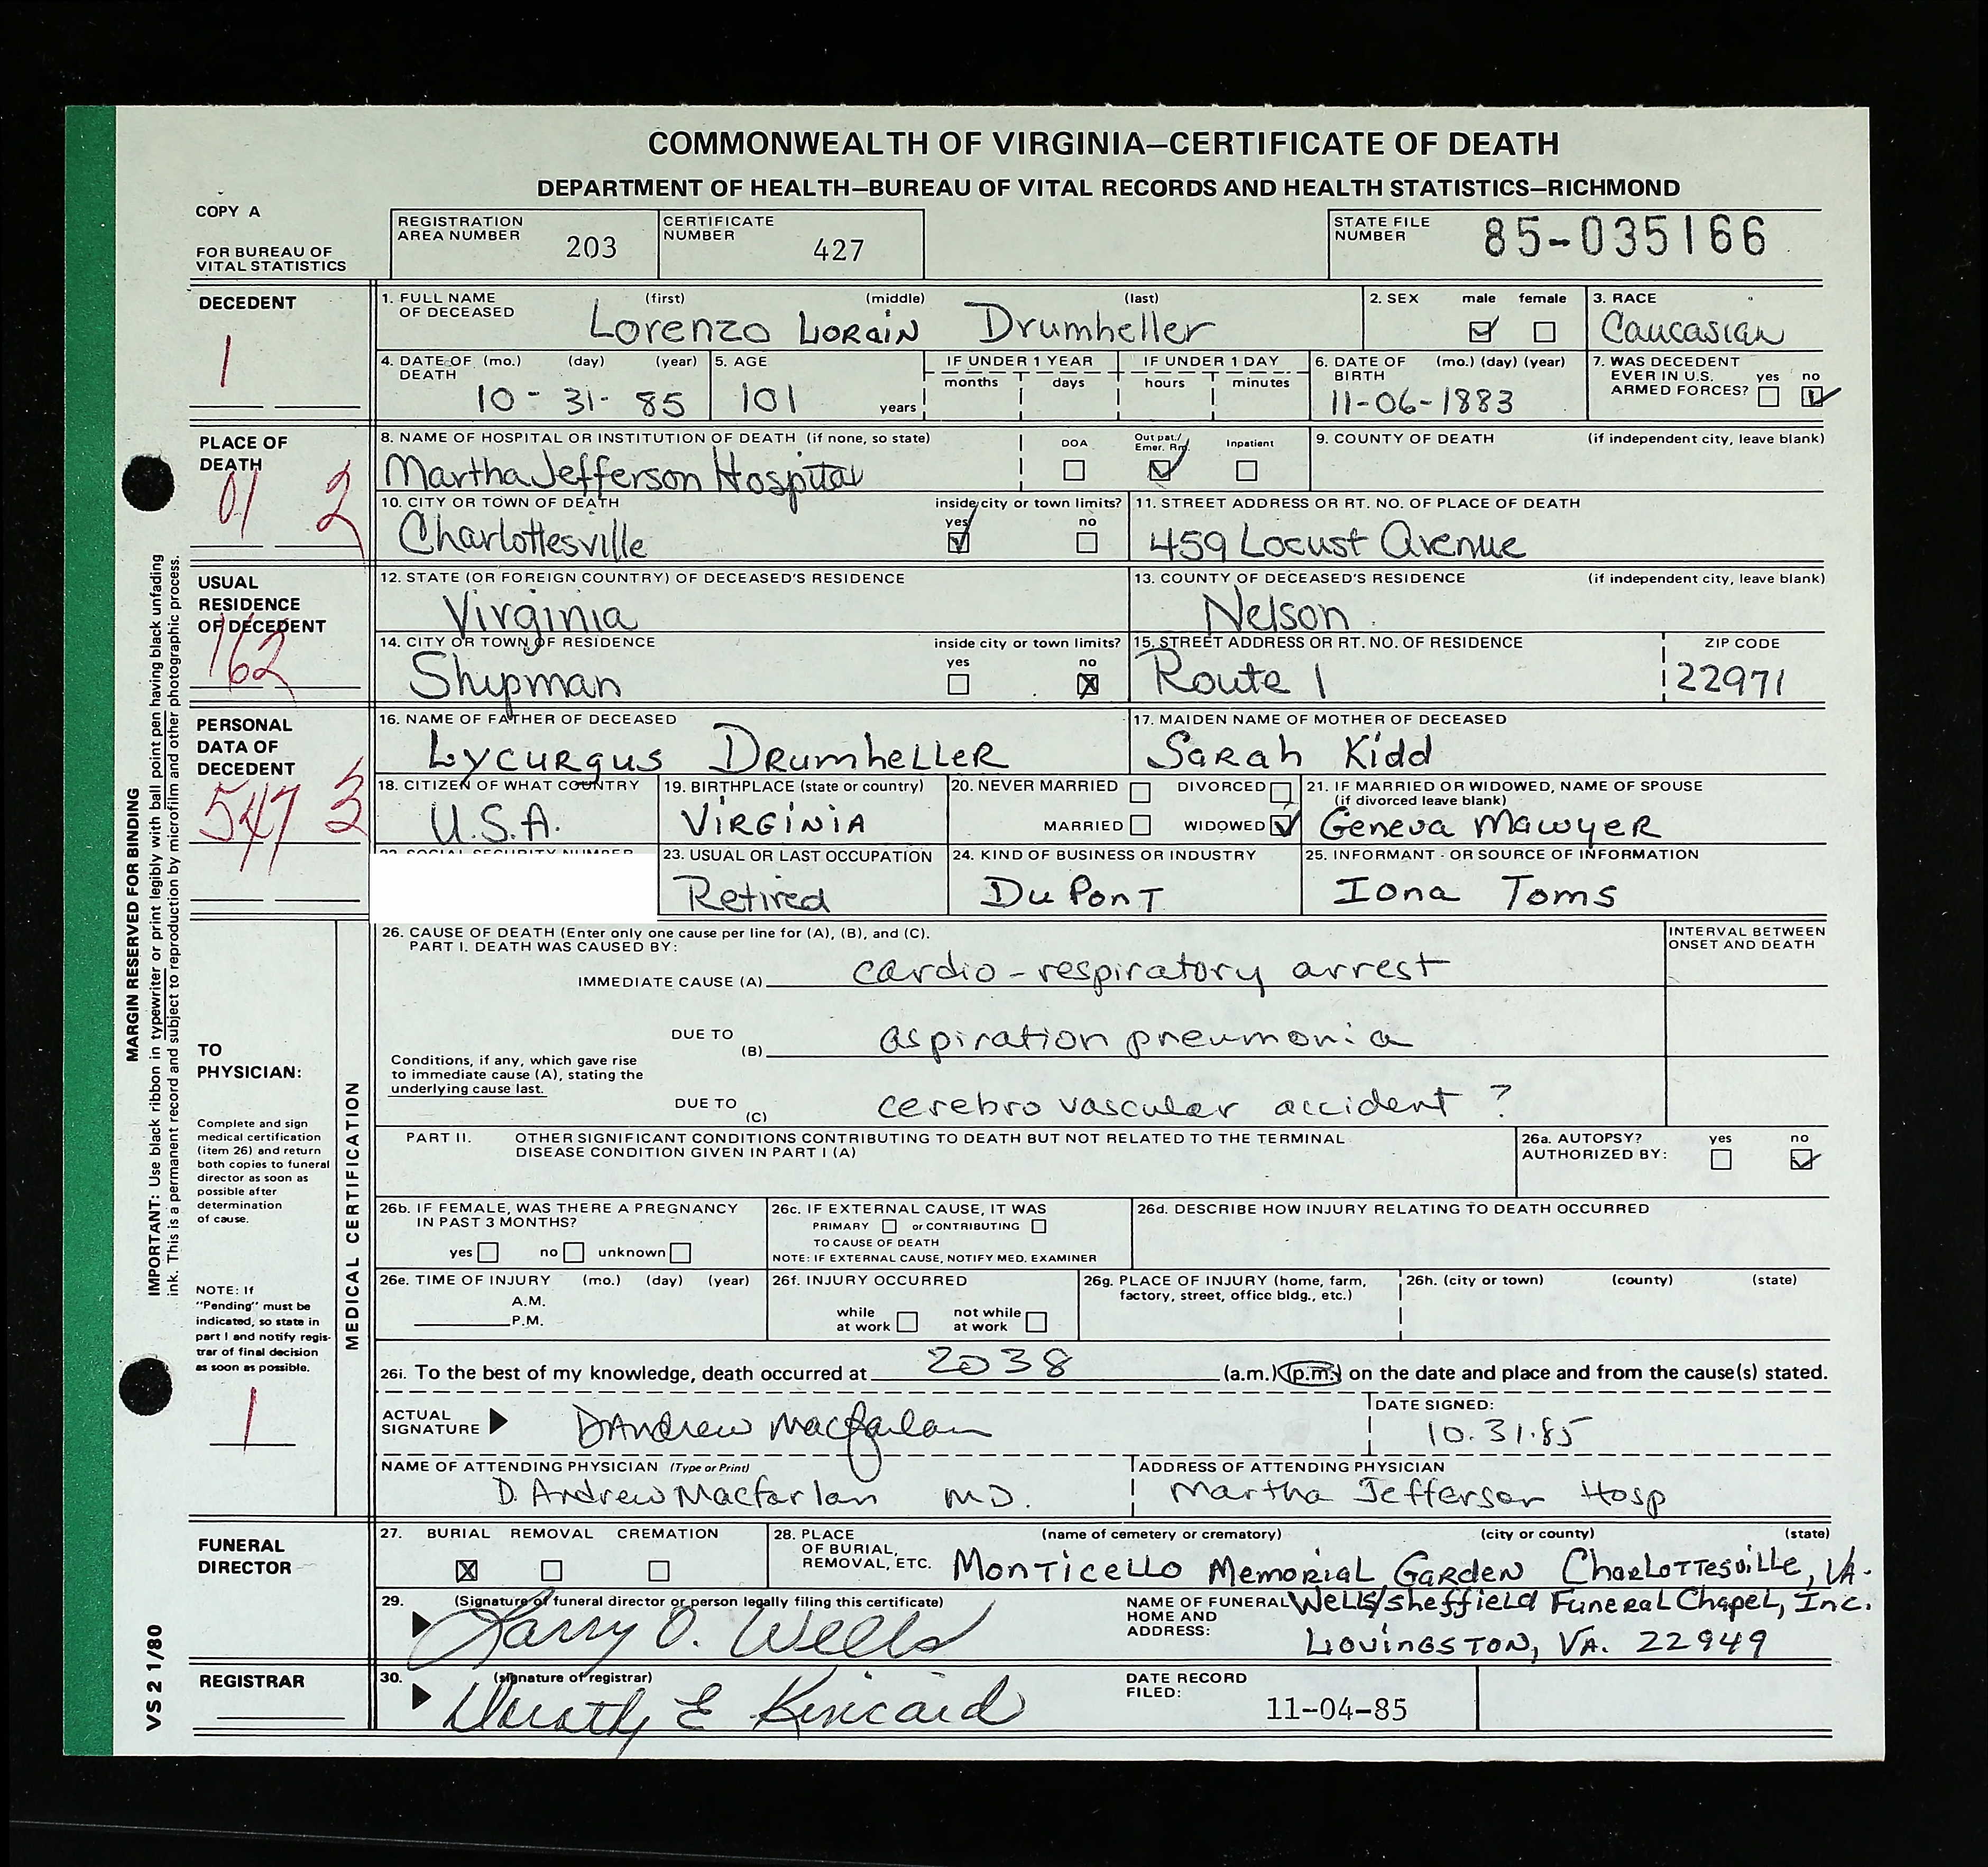 COMMONWEALTH OF VIRGINIA—CERTIFICATE OF DEATH
DEPARTMENT OF HEALTH—BUREAU OF VITAL RECORDS AND HEALTH STATISTICS—RICHMOND
COPY A
FOR BUREAU OF
VITAL STATISTICS
REGISTRATION
AREA NUMBER 203
CERTIFICATE
NUMBER 427
STATE FILE
NUMBER 85-035166
DECEDENT
1
1. FULL NAME (first) (middle) (last)
OF DECEASED
Lorenzo Lorain Drumheller
2. SEX male female
3. RACE
Caucasian
4. DATE OF (mo.) (day) (year)
DEATH
10-31-85
5. AGE
101 years
IF UNDER 1 YEAR
months days
IF UNDER 1 DAY
hours minutes
6. DATE OF (mo.) (day) (year)
BIRTH
11-06-1883
7. WAS DECEDENT
EVER IN U.S. yes no
ARMED FORCES?
PLACE OF
DEATH
01 2
8. NAME OF HOSPITAL OR INSTITUTION OF DEATH (if none, so state)
Martha Jefferson Hospital
DOA Out pat./ Emer. Rm. Inpatient
9. COUNTY OF DEATH (if independent city, leave blank)
10. CITY OR TOWN OF DEATH inside city or town limits?
yes no
Charlottesville
11. STREET ADDRESS OR RT. NO. OF PLACE OF DEATH
459 Locust Avenue
USUAL
RESIDENCE
OF DECEDENT
162
12. STATE (OR FOREIGN COUNTRY) OF DECEASED'S RESIDENCE
Virginia
13. COUNTY OF DECEASED'S RESIDENCE (if independent city, leave blank)
Nelson
14. CITY OR TOWN OF RESIDENCE inside city or town limits?
yes no
Shipman
15. STREET ADDRESS OR RT. NO. OF RESIDENCE
Route 1
ZIP CODE
22971
PERSONAL
DATA OF
DECEDENT
547 3
16. NAME OF FATHER OF DECEASED
Lycurgus Drumheller
17. MAIDEN NAME OF MOTHER OF DECEASED
Sarah Kidd
18. CITIZEN OF WHAT COUNTRY
U.S.A.
19. BIRTHPLACE (state or country)
Virginia
20. NEVER MARRIED DIVORCED
MARRIED WIDOWED
21. IF MARRIED OR WIDOWED, NAME OF SPOUSE
(if divorced leave blank)
Geneva Mawyer
22. SOCIAL SECURITY NUMBER
23. USUAL OR LAST OCCUPATION
Retired
24. KIND OF BUSINESS OR INDUSTRY
Du Pont
25. INFORMANT - OR SOURCE OF INFORMATION
Iona Toms
MARGIN RESERVED FOR BINDING
IMPORTANT: Use black ribbon in typewriter or print legibly with ball point pen having black unfading
ink. This is a permanent record and subject to reproduction by microfilm and other photographic process.
MEDICAL CERTIFICATION
26. CAUSE OF DEATH (Enter only one cause per line for (A), (B), and (C).
PART I. DEATH WAS CAUSED BY:
INTERVAL BETWEEN
ONSET AND DEATH
IMMEDIATE CAUSE (A) cardio-respiratory arrest
DUE TO
(B) aspiration pneumonia
Conditions, if any, which gave rise
to immediate cause (A), stating the
underlying cause last.
DUE TO
(C) cerebro vascular accident ?
TO
PHYSICIAN:
Complete and sign
medical certification
(item 26) and return
both copies to funeral
director as soon as
possible after
determination
of cause.
NOTE: If
"Pending" must be
indicated, so state in
part I and notify regis-
trar of final decision
as soon as possible.
1
PART II. OTHER SIGNIFICANT CONDITIONS CONTRIBUTING TO DEATH BUT NOT RELATED TO THE TERMINAL
DISEASE CONDITION GIVEN IN PART I (A)
26a. AUTOPSY? yes no
AUTHORIZED BY:
26b. IF FEMALE, WAS THERE A PREGNANCY
IN PAST 3 MONTHS?
yes no unknown
26c. IF EXTERNAL CAUSE, IT WAS
PRIMARY or CONTRIBUTING
TO CAUSE OF DEATH
NOTE: IF EXTERNAL CAUSE, NOTIFY MED. EXAMINER
26d. DESCRIBE HOW INJURY RELATING TO DEATH OCCURRED
26e. TIME OF INJURY (mo.) (day) (year)
A.M.
P.M.
26f. INJURY OCCURRED
while at work not while at work
26g. PLACE OF INJURY (home, farm,
factory, street, office bldg., etc.)
26h. (city or town) (county) (state)
26i. To the best of my knowledge, death occurred at 2038 (a.m.) (p.m.) on the date and place and from the cause(s) stated.
ACTUAL
SIGNATURE D Andrew Macfarlan
DATE SIGNED:
10.31.85
NAME OF ATTENDING PHYSICIAN (Type or Print)
D. Andrew Macfarlan MD.
ADDRESS OF ATTENDING PHYSICIAN
Martha Jefferson Hosp
FUNERAL
DIRECTOR
27. BURIAL REMOVAL CREMATION
28. PLACE (name of cemetery or crematory) (city or county) (state)
OF BURIAL,
REMOVAL, ETC. Monticello Memorial Garden Charlottesville, VA.
29. (Signature of funeral director or person legally filing this certificate)
Larry O. Wells
NAME OF FUNERAL
HOME AND
ADDRESS:
Wells/Sheffield Funeral Chapel, Inc.
Lovingston, VA. 22949
REGISTRAR
30. (signature of registrar)
Dorothy E Kincaid
DATE RECORD
FILED: 11-04-85
VS 2 1/80